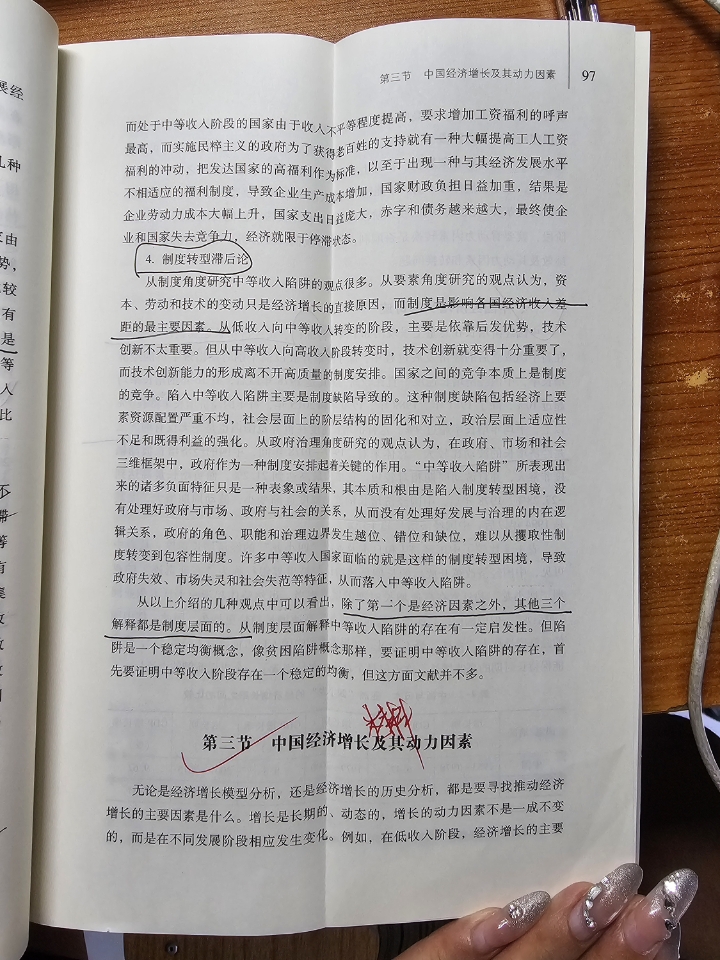 展经
几种
由
势，
较
有
是
等
人
比
不
滞
等
有
第三节 中国经济增长及其动力因素 97
而处于中等收入阶段的国家由于收入不平等程度提高，要求增加工资福利的呼声
最高，而实施民粹主义的政府为了获得老百姓的支持就有一种大幅提高工人工资
福利的冲动，把发达国家的高福利作为标准，以至于出现一种与其经济发展水平
不相适应的福利制度，导致企业生产成本增加，国家财政负担日益加重，结果是
企业劳动力成本大幅上升，国家支出日益庞大，赤字和债务越来越大，最终使企
业和国家失去竞争力，经济就限于停滞状态。
4. 制度转型滞后论
从制度角度研究中等收入陷阱的观点很多。从要素角度研究的观点认为，资
本、劳动和技术的变动只是经济增长的直接原因，而制度是影响各国经济收入差
距的最主要因素。从低收入向中等收入转变的阶段，主要是依靠后发优势，技术
创新不太重要。但从中等收入向高收入阶段转变时，技术创新就变得十分重要了，
而技术创新能力的形成离不开高质量的制度安排。国家之间的竞争本质上是制度
的竞争。陷入中等收入陷阱主要是制度缺陷导致的。这种制度缺陷包括经济上要
素资源配置严重不均，社会层面上的阶层结构的固化和对立，政治层面上适应性
不足和既得利益的强化。从政府治理角度研究的观点认为，在政府、市场和社会
三维框架中，政府作为一种制度安排起着关键的作用。“中等收入陷阱”所表现出
来的诸多负面特征只是一种表象或结果，其本质和根由是陷入制度转型困境，没
有处理好政府与市场、政府与社会的关系，从而没有处理好发展与治理的内在逻
辑关系，政府的角色、职能和治理边界发生越位、错位和缺位，难以从攫取性制
度转变到包容性制度。许多中等收入国家面临的就是这样的制度转型困境，导致
政府失效、市场失灵和社会失范等特征，从而落入中等收入陷阱。
从以上介绍的几种观点中可以看出，除了第一个是经济因素之外，其他三个
解释都是制度层面的。从制度层面解释中等收入陷阱的存在有一定启发性。但陷
阱是一个稳定均衡概念，像贫困陷阱概念那样，要证明中等收入陷阱的存在，首
先要证明中等收入阶段存在一个稳定的均衡，但这方面文献并不多。
第三节 中国经济增长及其动力因素
无论是经济增长模型分析，还是经济增长的历史分析，都是要寻找推动经济
增长的主要因素是什么。增长是长期的、动态的，增长的动力因素不是一成不变
的，而是在不同发展阶段相应发生变化。例如，在低收入阶段，经济增长的主要